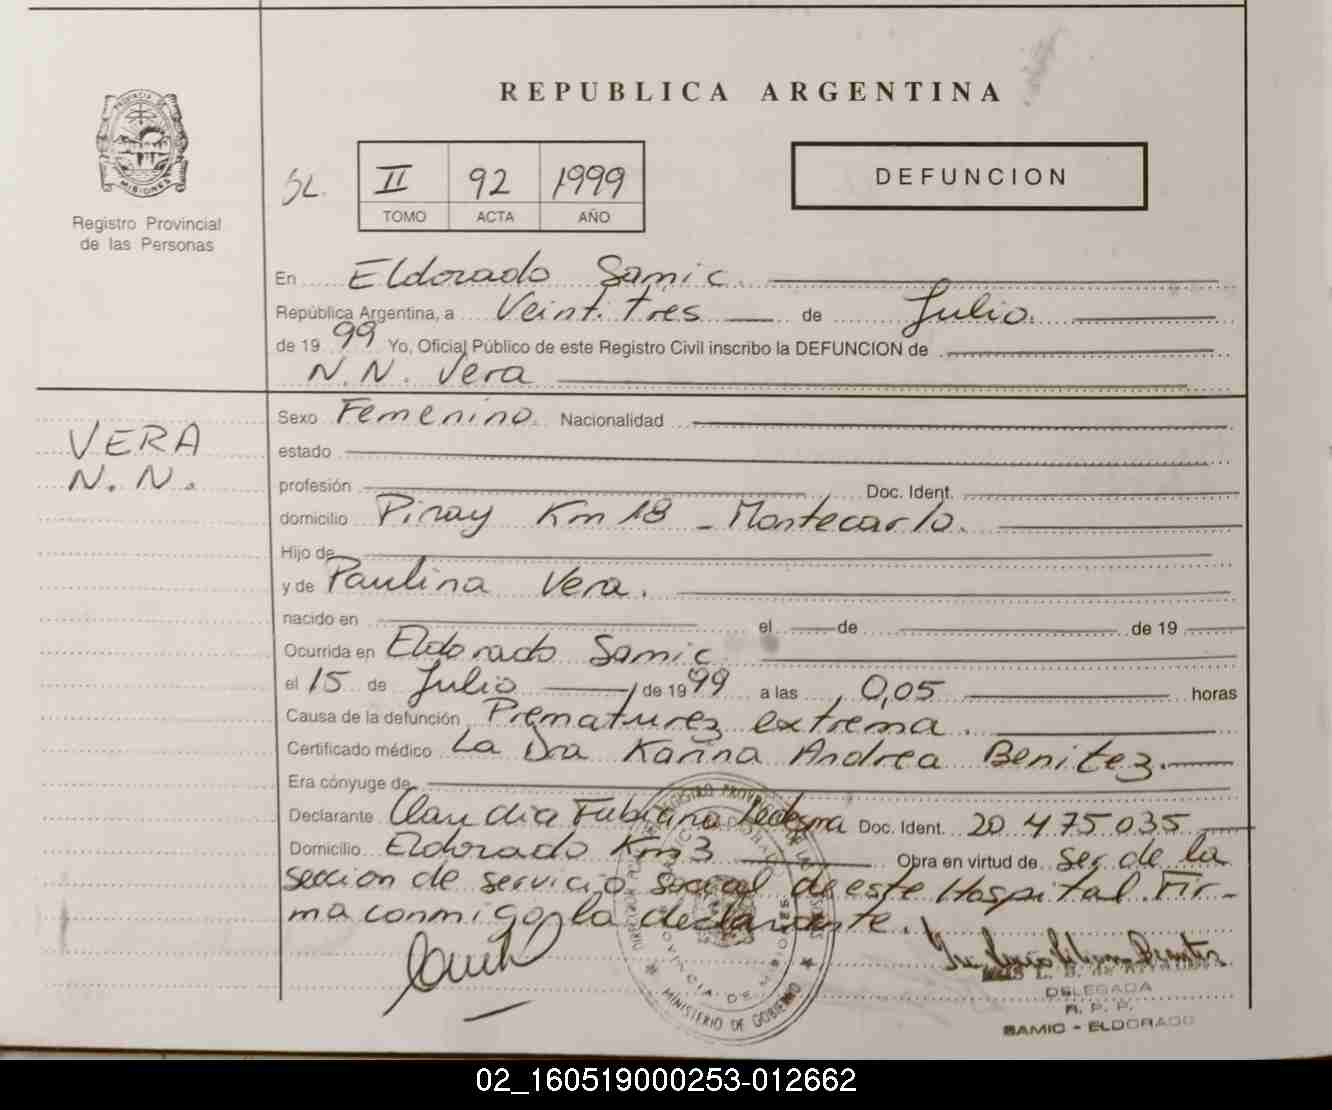 REPUBLICA ARGENTINA
PROVINCIA DE
MISIONES
Registro Provincial
de las Personas
SL.
II 92 1999
TOMO ACTA AÑO
DEFUNCION
En Eldorado Samic.
República Argentina, a Veint. tres de Julio.
de 19 99 Yo, Oficial Público de este Registro Civil inscribo la DEFUNCION de
N. N. Vera
VERA
N. N.
Sexo Femenino. Nacionalidad
estado
profesión Doc. Ident.
domicilio Piray Km 18 - Montecarlo.
Hijo de
y de Paulina Vera.
nacido en el de de 19
Ocurrida en Eldorado Samic
el 15 de Julio de 19 99 a las 0,05 horas
Causa de la defunción Prematurez extrema.
Certificado médico La Dra Karina Andrea Benitez.
Era cónyuge de
Declarante Claudia Fabiana Ledesma Doc. Ident. 20 475 035
Domicilio Eldorado Km 3 Obra en virtud de ser de la
sección de servicio social de este Hospital Fir-
ma conmigo la declarante.
MINISTERIO DE GOBIERNO
PROVINCIA DE MISIONES
DELEGADA
R. P. P.
SAMIC - ELDORADO
02_160519000253-012662